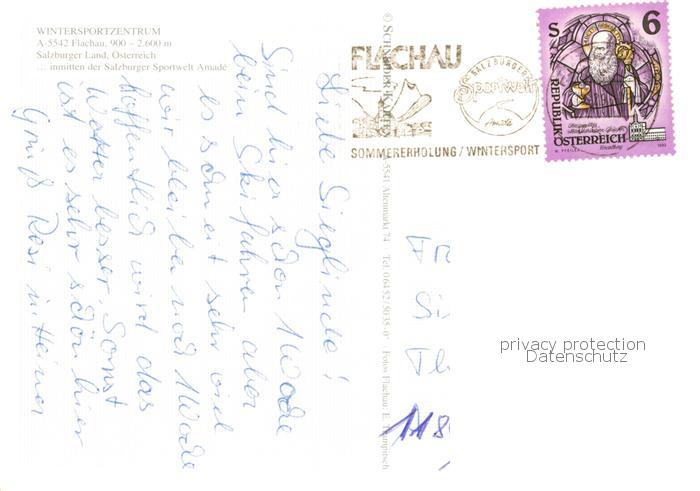 WINTERSPORTZENTRUM
A-5542 Flachau, 900 – 2.600 m
Salzburger Land, Österreich
... inmitten der Salzburger Sportwelt Amadé
Liebe Sieglinde!
Sind hier schon 1 Woche
beim Skifahren aber
es schneit sehr viel
wir bleiben noch 1 Woche
hoffentlich wird das
Wetter besser. Sonst
ist es sehr schön hier
Gruß Resi u. Heiner
5541 Altenmarkt 74 Tel. 06452/5035-0 Fotos Flachau: E.
FLACHAU
SALZBURGER
Sportwelt
Amadé
SOMMERERHOLUNG/WINTERSPORT
S 6
REPUBLIK
ÖSTERREICH
Fr
Si
Th
118
privacy protection
Datenschutz